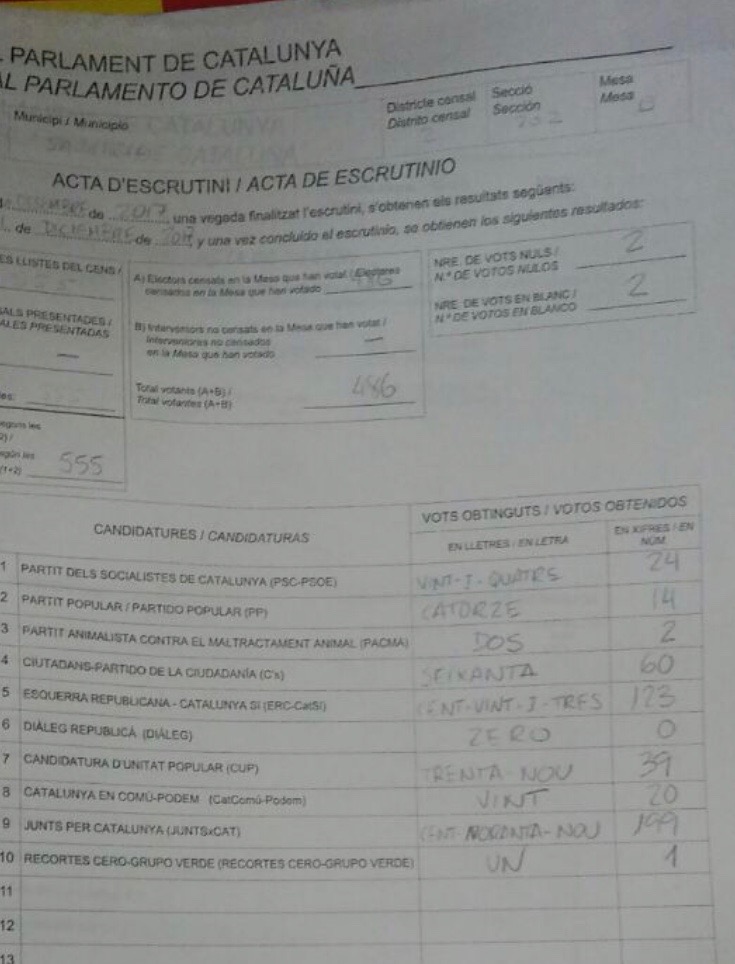 PARLAMENT DE CATALUNYA
AL PARLAMENTO DE CATALUÑA
Municipi / Municipio
Districte censal
Distrito censal
2
Secció
Sección
Mesa
Mesa
ACTA D'ESCRUTINI / ACTA DE ESCRUTINIO
DESEMBRE de 2017, una vegada finalitzat l'escrutini, s'obtenen els resultats següents:
de DICIEMBRE de 2017 y una vez concluido el escrutinio, se obtienen los siguientes resultados:
ES LLISTES DEL CENS /
ALS PRESENTADES /
ALES PRESENTADAS
—
es:
segons les
2) /
según las
(1+2) 555
A) Electors censats en la Mesa que han votat / Electores
censados en la Mesa que han votado 486
B) Interventors no censats en la Mesa que han votat /
Interventores no censados
en la Mesa que han votado —
Total votants (A+B) /
Total votantes (A+B) 486
NRE. DE VOTS NULS /
N.º DE VOTOS NULOS 2
NRE. DE VOTS EN BLANC /
N.º DE VOTOS EN BLANCO 2
CANDIDATURES / CANDIDATURAS
VOTS OBTINGUTS / VOTOS OBTENIDOS
EN LLETRES / EN LETRA
EN XIFRES / EN
NÚM.
1 PARTIT DELS SOCIALISTES DE CATALUNYA (PSC-PSOE) VINT-I-QUATRE 24
2 PARTIT POPULAR / PARTIDO POPULAR (PP) CATORZE 14
3 PARTIT ANIMALISTA CONTRA EL MALTRACTAMENT ANIMAL (PACMA) DOS 2
4 CIUTADANS-PARTIDO DE LA CIUDADANÍA (C's) SEIXANTA 60
5 ESQUERRA REPUBLICANA - CATALUNYA SÍ (ERC-CatSí) CENT-VINT-I-TRES 123
6 DIÀLEG REPUBLICÀ (DIÀLEG) ZERO 0
7 CANDIDATURA D'UNITAT POPULAR (CUP) TRENTA-NOU 39
8 CATALUNYA EN COMÚ-PODEM (CatComú-Podem) VINT 20
9 JUNTS PER CATALUNYA (JUNTSxCAT) CENT-NORANTA-NOU 199
10 RECORTES CERO-GRUPO VERDE (RECORTES CERO-GRUPO VERDE) UN 1
11
12
13